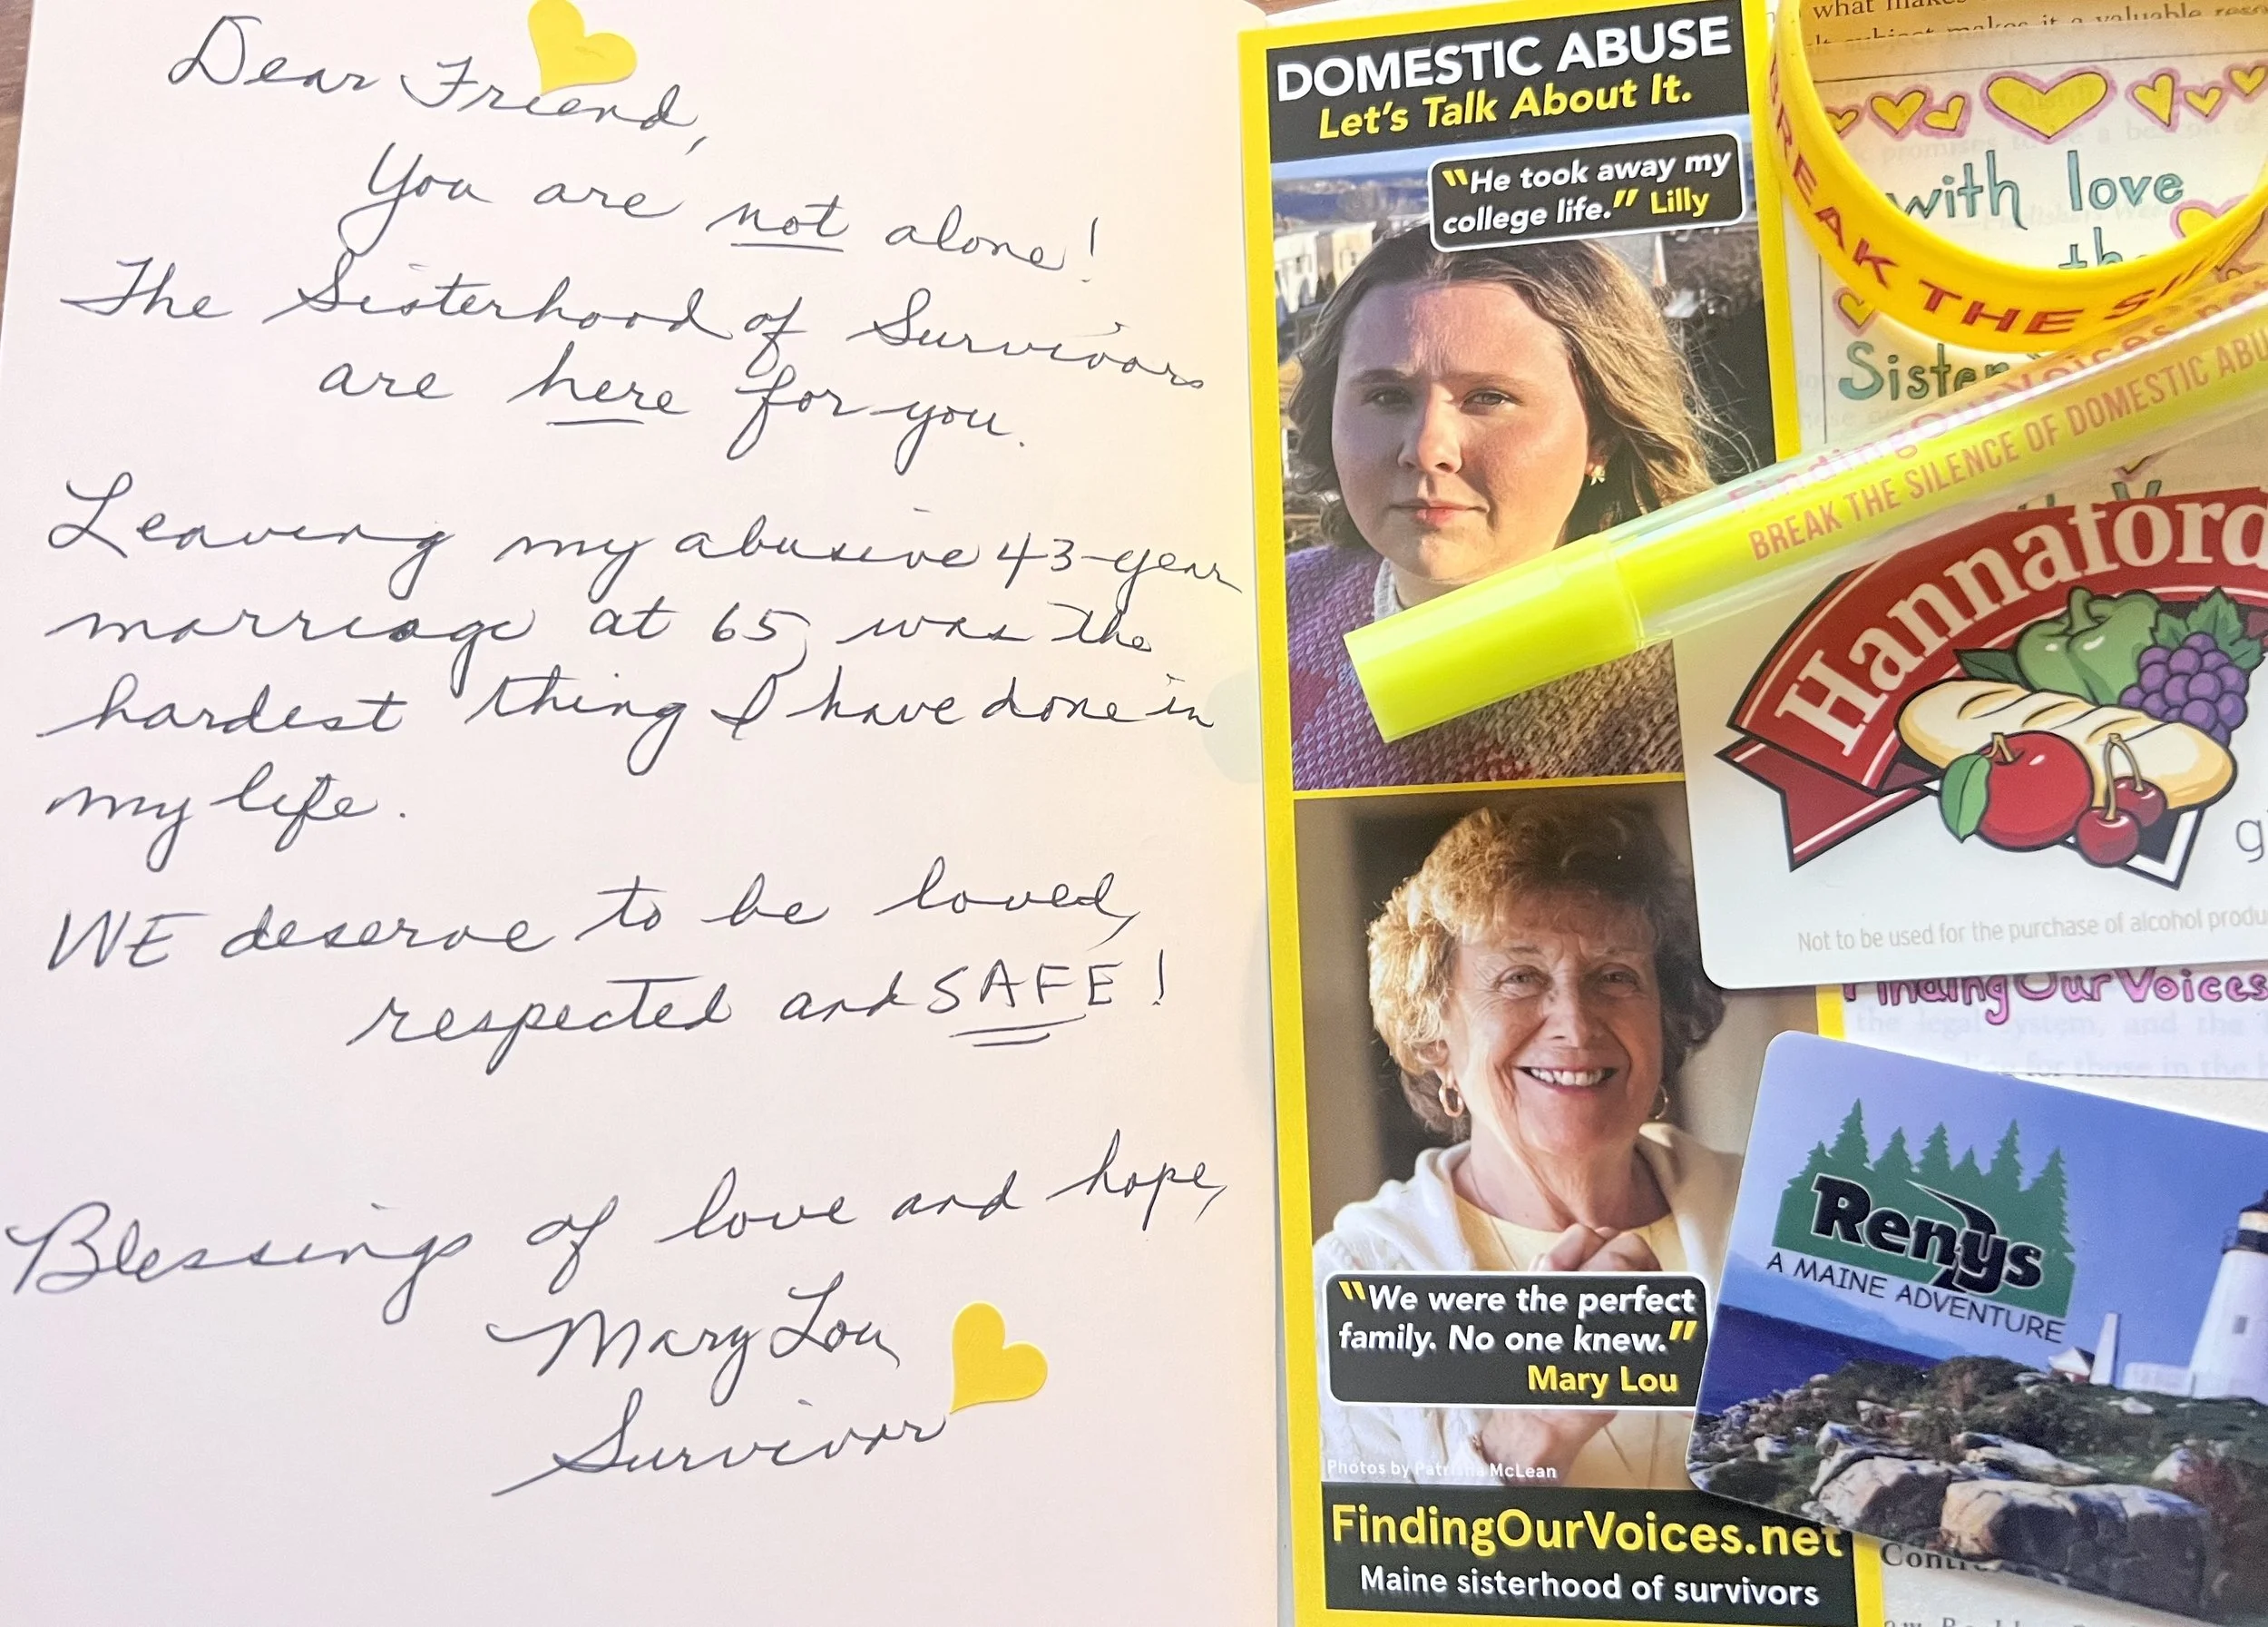 Dear Friend,
You are not alone!
The Sisterhood of Survivors
are here for you.
Leaving my abusive 43-year
marriage at 65, was the
hardest thing I have done in
my life.
WE deserve to be loved,
respected and SAFE!
Blessings of love and hope,
Mary Lou
Survivor
DOMESTIC ABUSE
Let's Talk About It.
"He took away my
college life." Lilly
"We were the perfect
family. No one knew."
Mary Lou
Photos by Patrisha McLean
FindingOurVoices.net
Maine sisterhood of survivors
what makes
subject makes it a valuable
BREAK THE
with love
Sister
FindingOurVoices
BREAK THE SILENCE OF DOMESTIC
Hannaford
Not to be used for the purchase of alcohol
FindingOurVoices
the legal system, and the
for those in the
Renys
A MAINE ADVENTURE